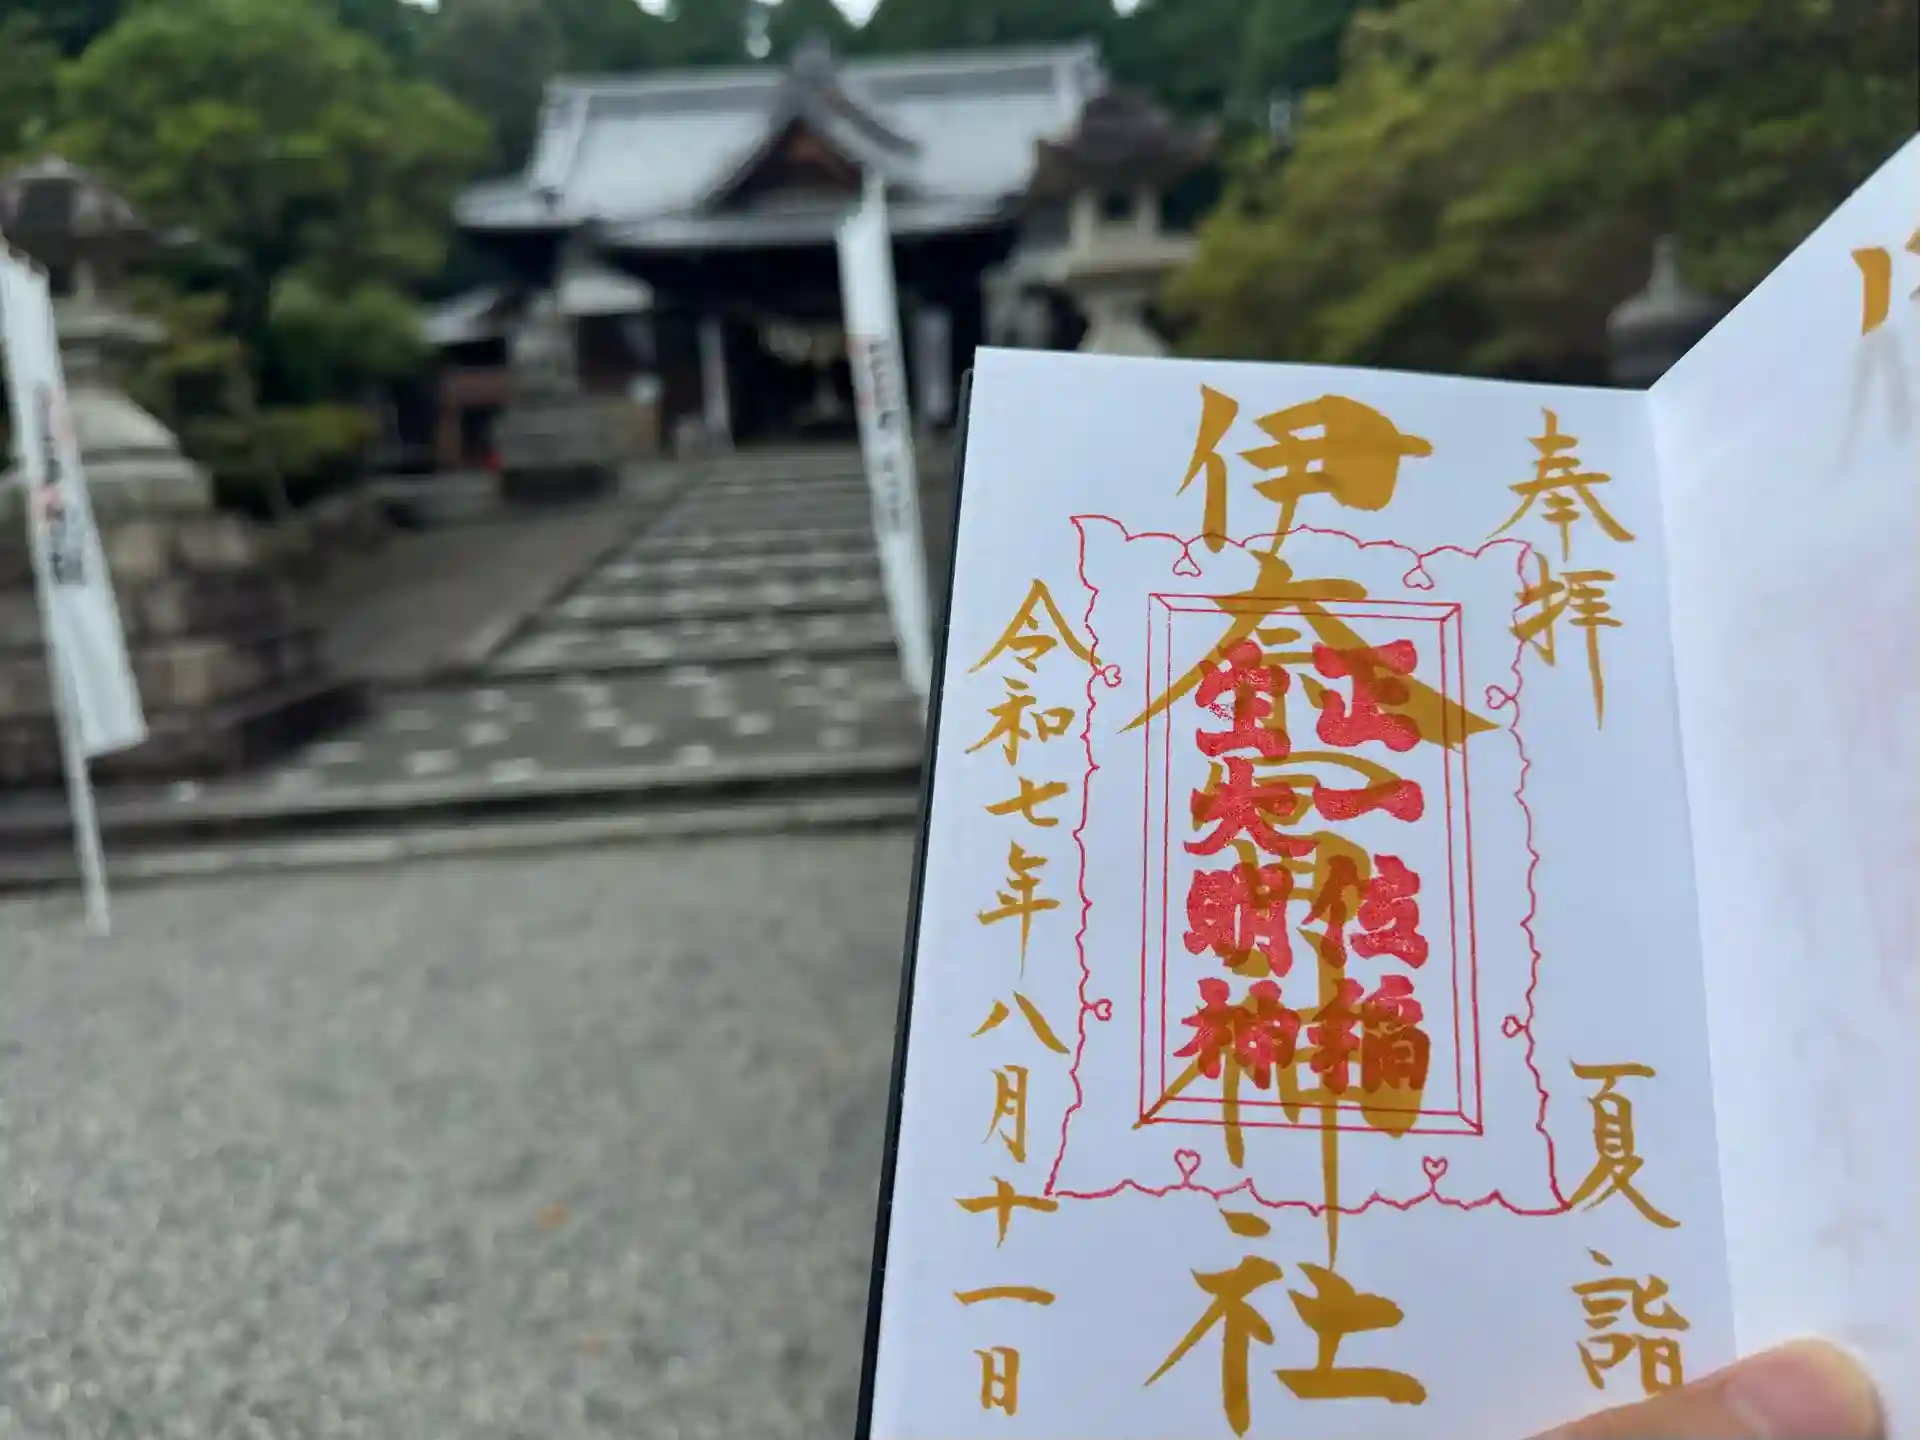 奉拝
夏詣
伊奈冨神社
正一位稲
生大明神
令和七年八月十一日